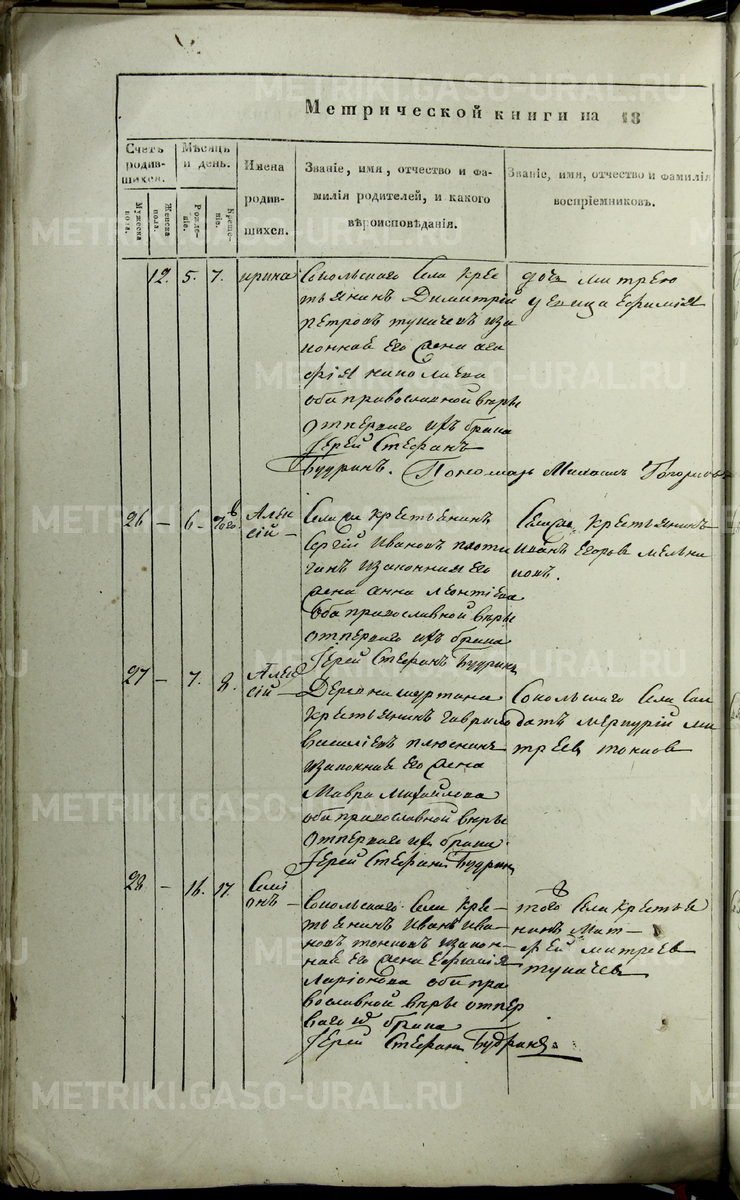 Метрической книги на 18
Счетъ родившихся.
Мѣсяцъ и день.
Имена родившихся.
Званіе, имя, отчество и фамилія родителей, и какого вѣроисповѣданія.
Званіе, имя, отчество и фамилія воспріемниковъ.
Мужеска пола.
Женска пола.
Рожденіе.
Крещеніе.
12. 5. 7. ирина
Сокольскаго Села Кре
тьянинъ Димитрій
петровъ тупачевъ иза
конная Его жена ага
фія николаева
оба православной вѣры
отперваго ихъ брака
Іерей Стефанъ
Будринъ. Пономарь Михаилъ
дочь митрею
девица Ефимія
26 — 6. Алек
сій —
Села крестьянинъ
Сергій Ивановъ плотн
изаконная Его
жена анна леонтіева
оба православной вѣры
отперваго ихъ брака
Іерей Стефанъ Будринъ
крестьянинъ
иванъ Егоровъ мельни
ковъ.
27 — 7. 8. Алек
сій —
Деревни шуртана
крестьянинъ гаврило
василіевъ плюснинъ
изаконная Его жена
Мавра Михайлова
оба православной вѣры
отперваго ихъ брака
Іерей Стефанъ Будринъ
Сокольскаго Села Сол
датъ меркурій ми
треев токов
28 — 16. 17. Семі
онъ —
Сокольскаго Села Кре—
тьянинъ Иванъ ива—
новъ токовъ изакон—
ная Его жена Ефимія
Ларіонова оба пра
вославной вѣры отпер
ваго их брака
Іерей Стефанъ Будринъ.
того Села Крестья
нинъ Мат—
фей митреев
тупачев
METRIKI.GASO-URAL.RU